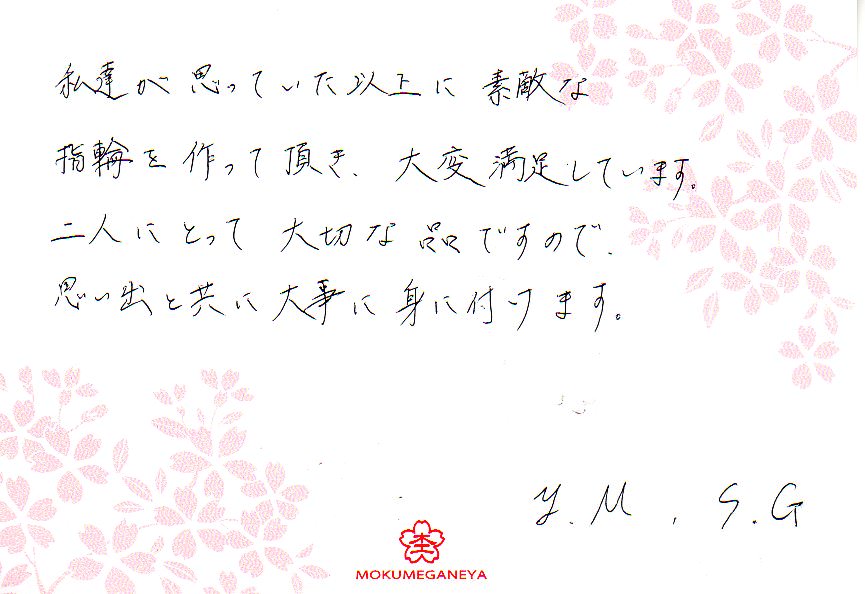 私達が思っていた以上に素敵な
指輪を作って頂き、大変満足しています。
二人にとって大切な品ですので、
思い出と共に大事に身に付けます。
Y.M , S.G
MOKUMEGANEYA